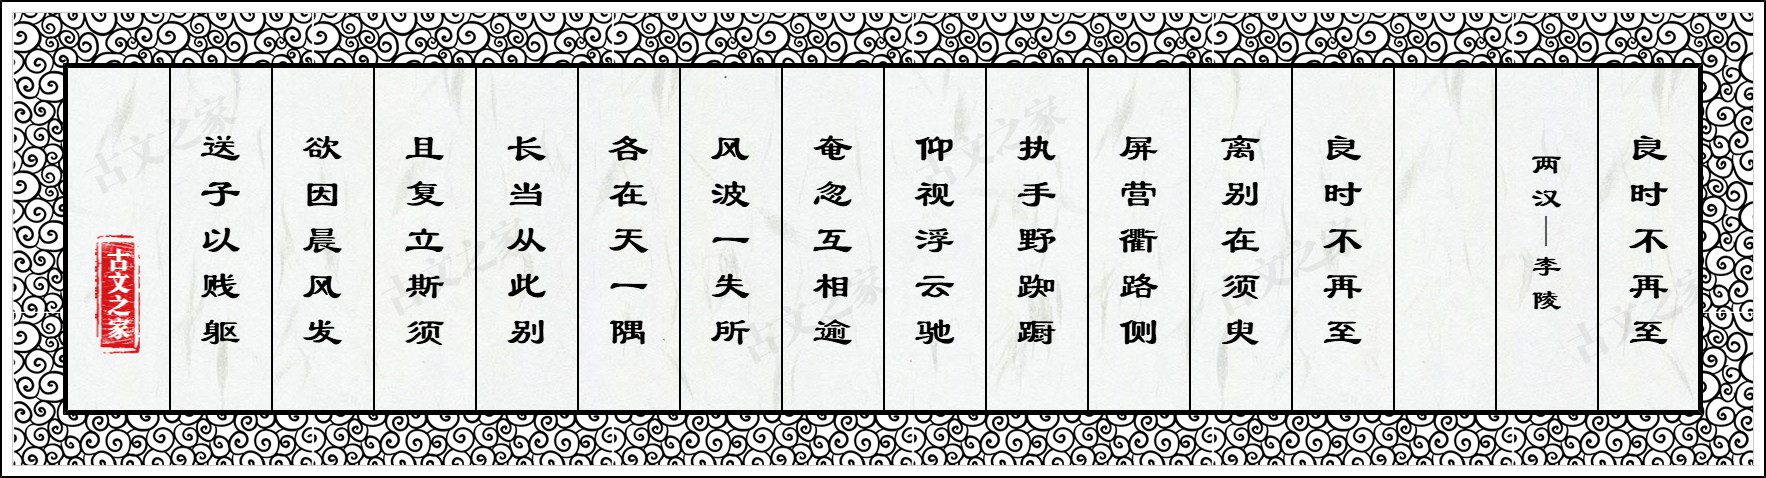 良时不再至
两汉—李陵
良时不再至
离别在须臾
屏营衢路侧
执手野踟蹰
仰视浮云驰
奄忽互相逾
风波一失所
各在天一隅
长当从此别
且复立斯须
欲因晨风发
送子以贱躯
古文之家